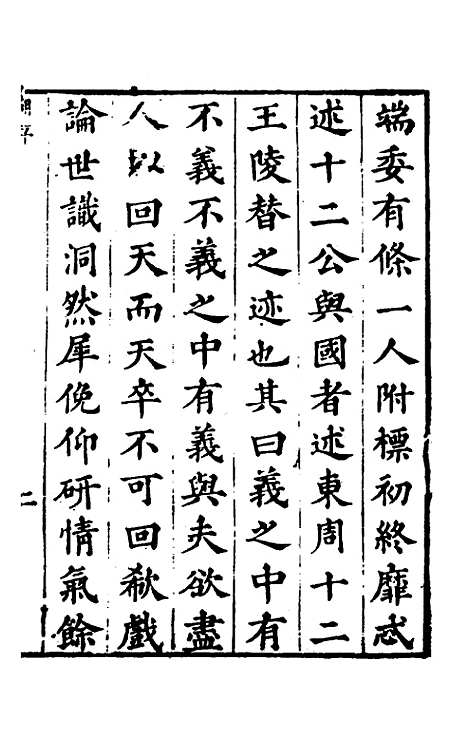 端委有條一人附標初終靡忒
述十二公與國者述東周十二
王陵替之迹也其曰義之中有
不義不義之中有義與夫欲盡
人以回天而天卒不可回欷戲
論世識洞然犀俛仰研情氣餘
二